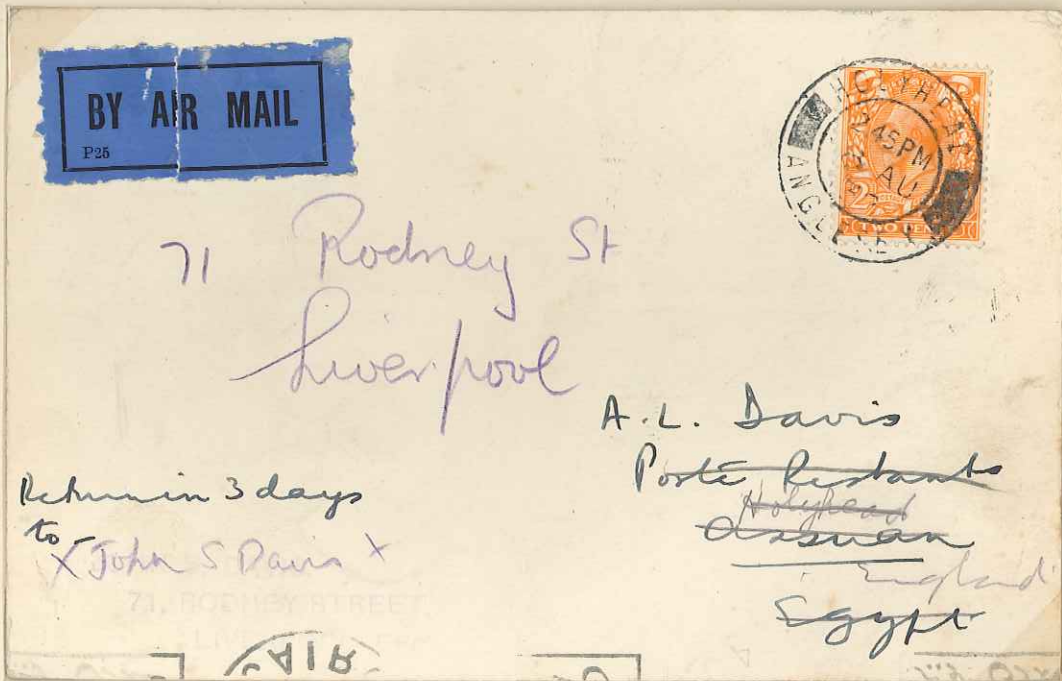 BY AIR MAIL
P25
HOLYHEAD
2 45 PM
AU
ANGLESEY
TWO PENCE
71 Rodney St
Liverpool
A. L. Davis
Poste Restante
Holyhead
Assuan
England
Egypt
Return in 3 days
to -
X John S Davis X
71, RODNEY STREET,
CAIR